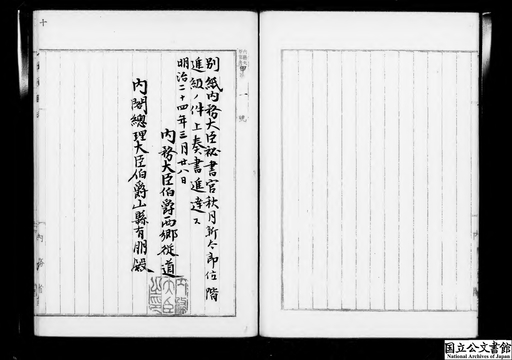 別紙内務大臣秘書官秋月新太郎位階
進級ノ件上奏書進達ス
明治二十四年三月廿八日
内務大臣伯爵西郷従道
内閣總理大臣伯爵山縣有朋殿
内務大臣之印
十
国立公文書館
National Archives of Japan